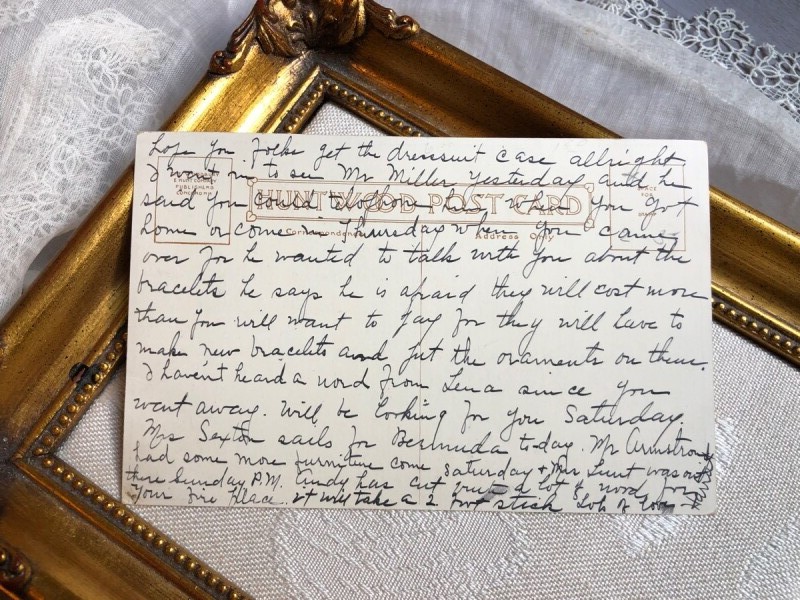 Hope you folks get the dresssuit case allright
I went in to see Mr Miller yesterday and he
PUBLISHERS
HUNTWOOD POST CARD
PLACE
said you could telephone him when you got
Correspondence
Address Only
home or come in Thursday when you came
over for he wanted to talk with you about the
bracelets he says he is afraid they will cost more
than you will want to pay for they will have to
make new bracelets and put the ornaments on them.
I haven't heard a word from Lena since you
went away. Will be looking for you Saturday.
Mrs Sexton sails for Bermuda today. Mr Armstrong
had some more furniture come Saturday + Mrs Lunt was out
there Sunday P.M. Andy has cut quite a lot of wood for
your fire place. it will take a 2 foot stick Lots of love